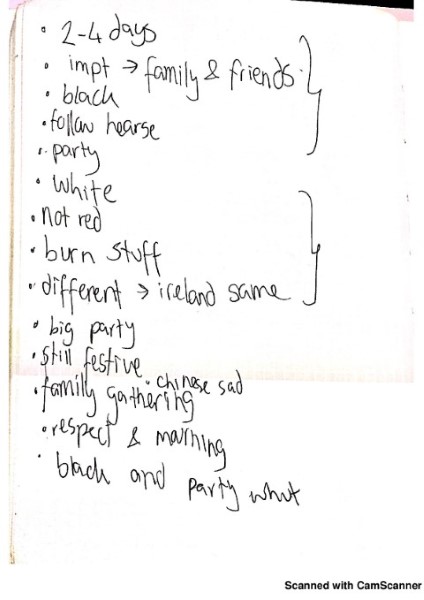 • 2-4 days
• impt → family & friends.
• black
• follow hearse
• party
• white
• not red
• burn stuff
• different → ireland same
• big party
• still festive
• chinese sad
• family gathering
• respect & mourning
• black and party what
Scanned with CamScanner